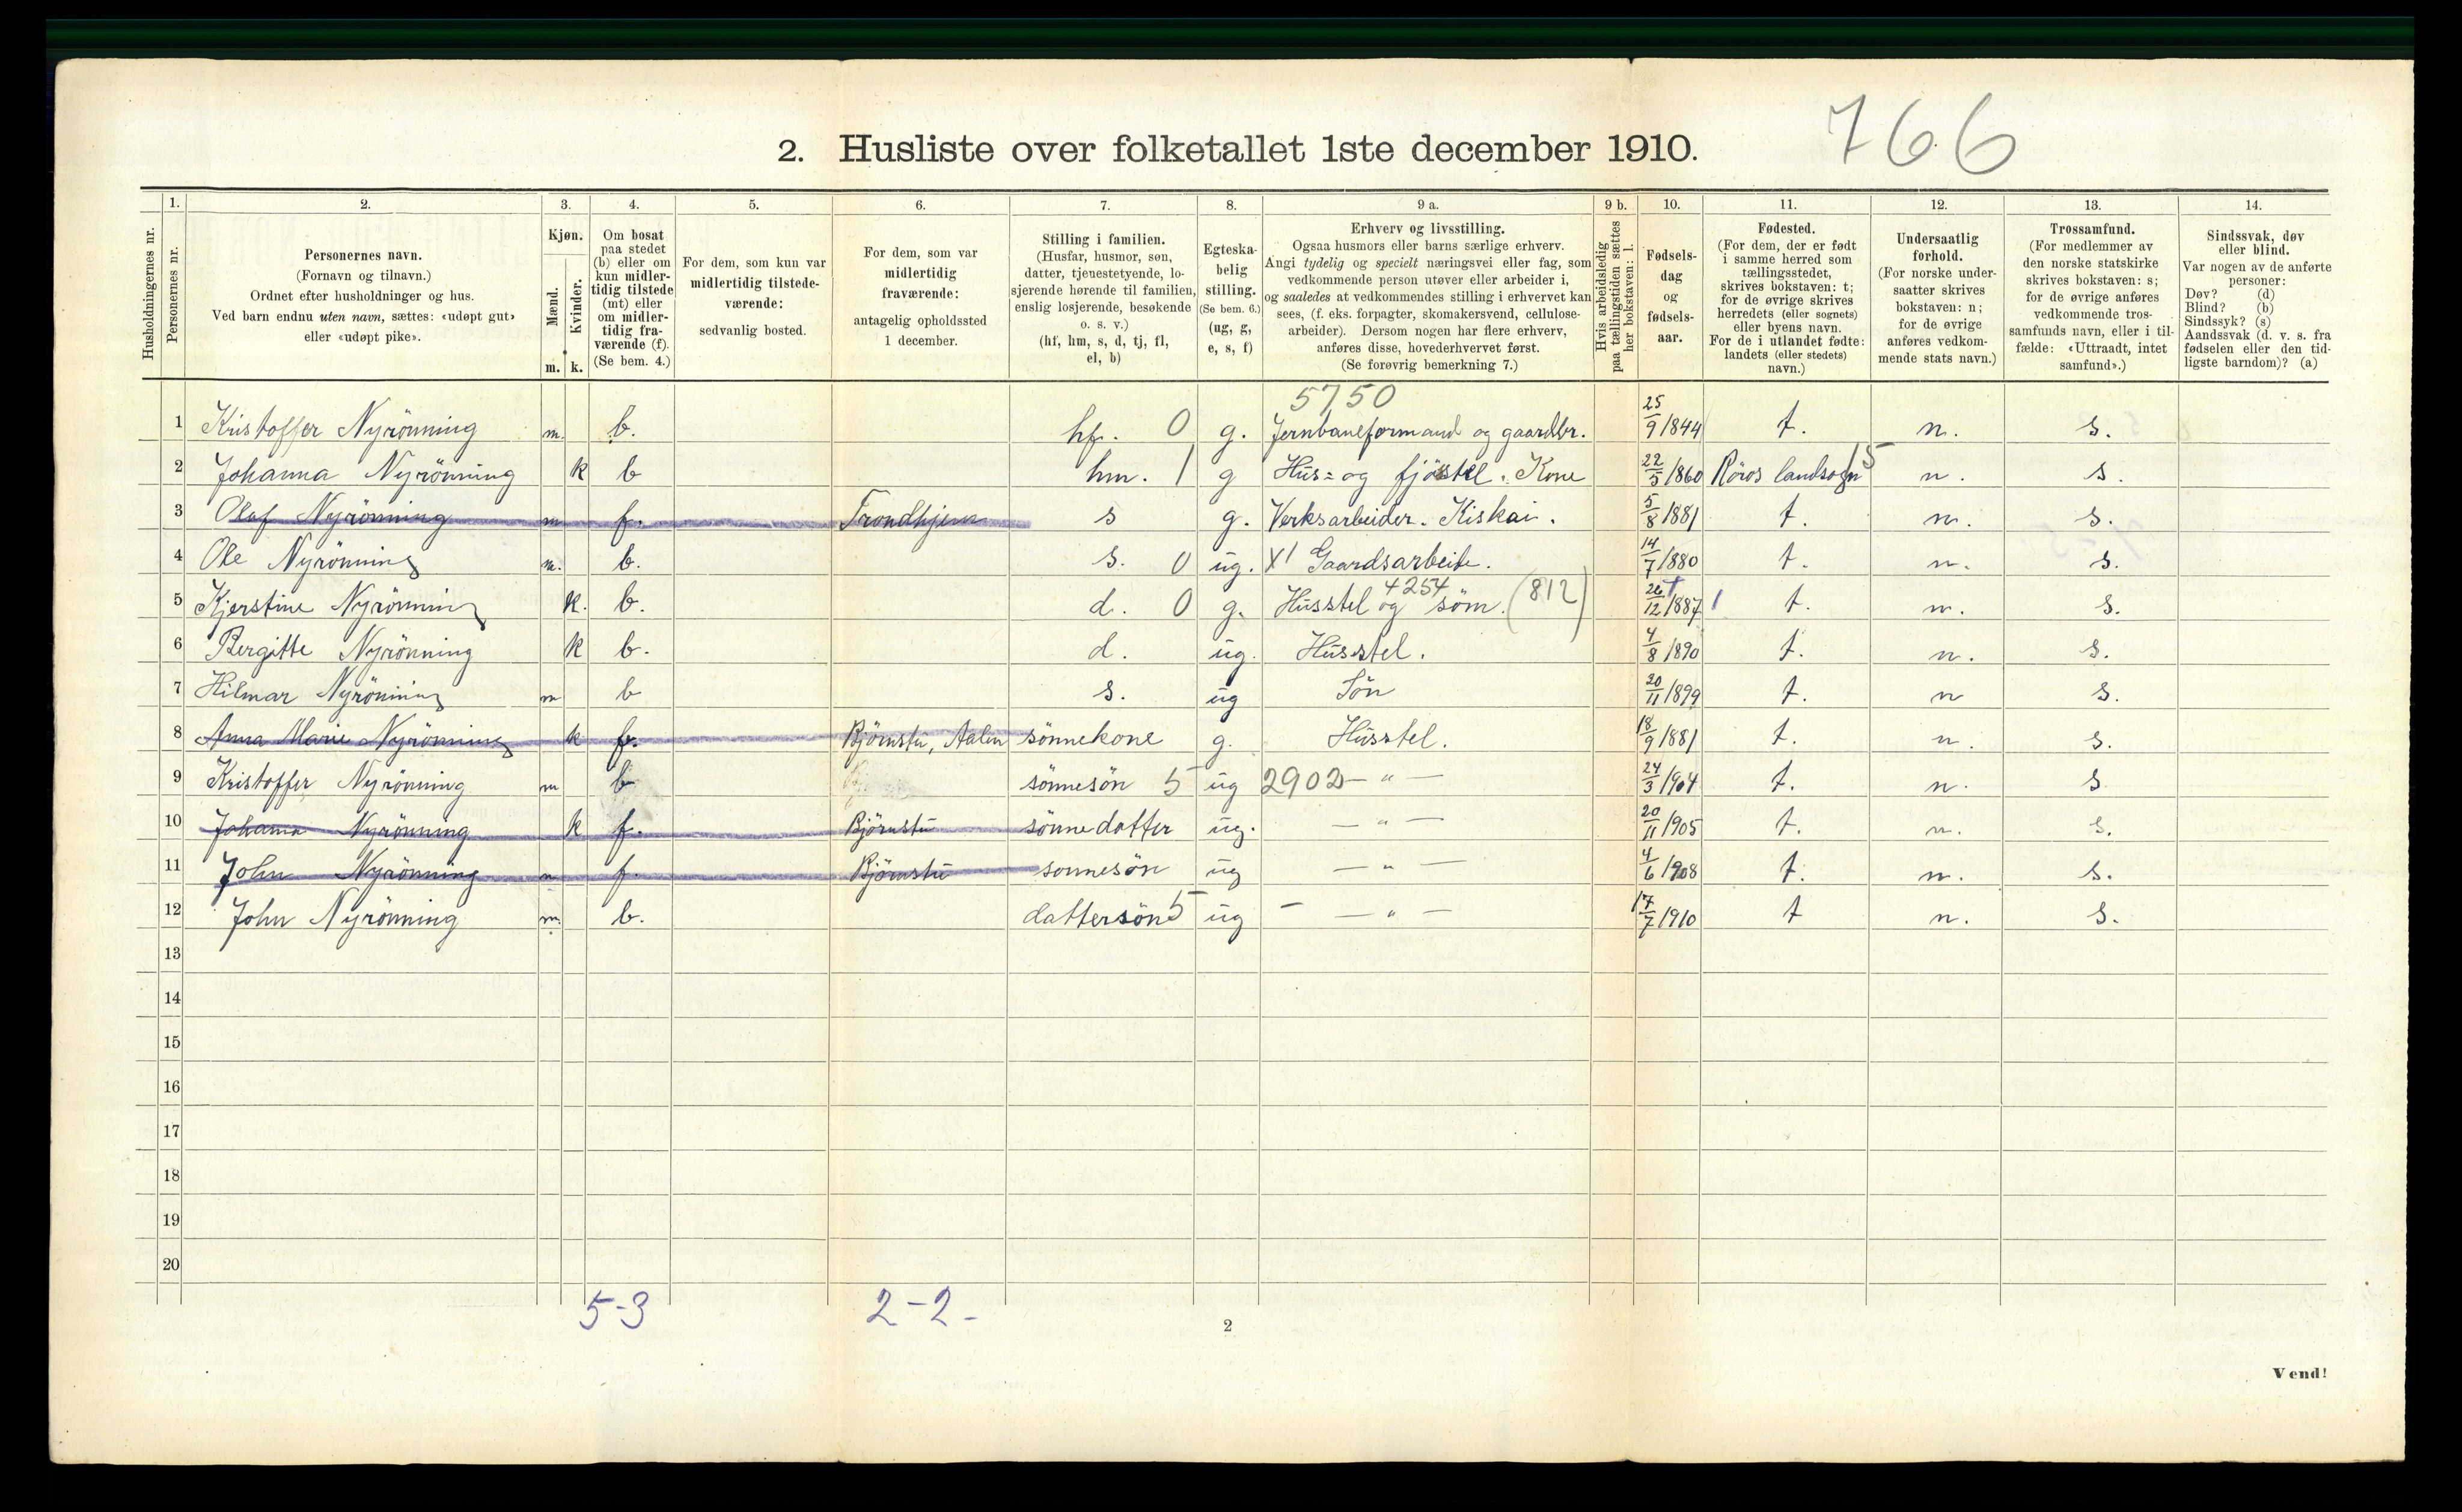 766
2. Husliste over folketallet 1ste december 1910.
Husholdningernes nr.
1. Personernes nr.
2. Personernes navn. (Fornavn og tilnavn.) Ordnet efter husholdninger og hus. Ved barn endnu uten navn, sættes: «udøpt gut» eller «udøpt pike».
3. Kjøn. Mænd. m. Kvinder. k.
4. Om bosat paa stedet (b) eller om kun midlertidig tilstede (mt) eller om midlertidig fraværende (f). (Se bem. 4.)
5. For dem, som kun var midlertidig tilstedeværende: sedvanlig bosted.
6. For dem, som var midlertidig fraværende: antagelig opholdssted 1 december.
7. Stilling i familien. (Husfar, husmor, søn, datter, tjenestetyende, losjerende hørende til familien, enslig losjerende, besøkende o. s. v.) (hf, hm, s, d, tj, fl, el, b)
8. Egteskabelig stilling. (Se bem. 6.) (ug, g, e, s, f)
9 a. Erhverv og livsstilling. Ogsaa husmors eller barns særlige erhverv. Angi tydelig og specielt næringsvei eller fag, som vedkommende person utøver eller arbeider i, og saaledes at vedkommendes stilling i erhvervet kan sees, (f. eks. forpagter, skomakersvend, cellulosearbeider). Dersom nogen har flere erhverv, anføres disse, hovederhvervet først. (Se forøvrig bemerkning 7.)
9 b. Hvis arbeidsledig paa tællingstiden sættes her bokstaven: l.
10. Fødselsdag og fødselsaar.
11. Fødested. (For dem, der er født i samme herred som tællingsstedet, skrives bokstaven: t; for de øvrige skrives herredets (eller sognets) eller byens navn. For de i utlandet fødte: landets (eller stedets) navn.)
12. Undersaatlig forhold. (For norske undersaatter skrives bokstaven: n; for de øvrige anføres vedkommende stats navn.)
13. Trossamfund. (For medlemmer av den norske statskirke skrives bokstaven: s; for de øvrige anføres vedkommende trossamfunds navn, eller i tilfælde: «Uttraadt, intet samfund».)
14. Sindssvak, døv eller blind. Var nogen av de anførte personer: Døv? (d) Blind? (b) Sindssyk? (s) Aandssvak (d. v. s. fra fødselen eller den tidligste barndom)? (a)
5750
1 Kristoffer Nyrönning m. b. hf. 0 g. Jernbaneformand og gaardbr. 25/9 1844 t. n. s.
2 Johanna Nyrönning k b hm. 1 g Hus= og fjöstel. Kone 22/5 1860 Röros landsogn 5 n. s.
3 Olaf Nyrönning m f. Trondhjem s g. Verksarbeider. Kiskai. 5/8 1881 t. n. s.
4 Ole Nyrönning m. b. s. 0 ug. X1 Gaardsarbeite. 14/7 1880 t. n. s.
5 Kjerstine Nyrönning k. b. d. 0 g. Husstel og söm. 4254 (812) 26/12 1887 t. n. s.
6 Bergitte Nyrönning k b. d. ug. Husstel. 4/8 1890 t. n. s.
7 Hilmar Nyrönning m b s. ug Sön 20/11 1899 t. n s.
8 Anna Marie Nyrönning k f. Björnstu, Aalen sönnekone g. Husstel. 18/9 1881 t. n. s.
9 Kristoffer Nyrönning m b sönnesön 5 ug 2902 — " — 24/3 1904 t. n. s
10 Johanna Nyrönning k f. Björnstu sönnedatter ug. — " — 20/11 1905 t. n. s.
11 John Nyrönning m f. Björnstu sonnesön ug — " — 4/6 1908 t. n. s.
12 John Nyrönning m. b. dattersön 5 ug — — " — 17/7 1910 t n. s.
13
14
15
16
17
18
19
20
5-3 2-2-
2
Vend!